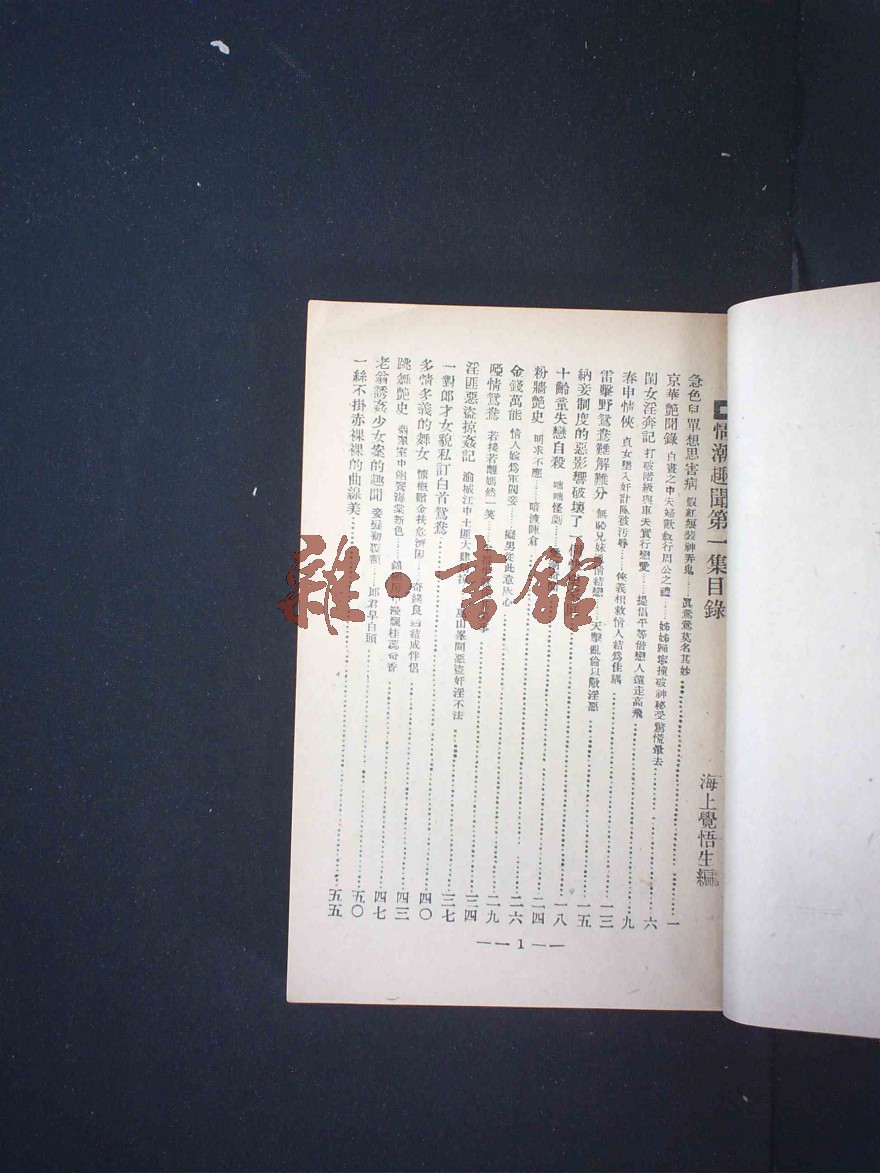 情潮趣聞第一集目錄
海上覺悟生編
急色兒單想思害病 假紅娘裝神弄鬼……真鴛鴦莫名其妙……一
京華艷聞錄 白晝之中夫婦歡敘行周公之禮……姊姊歸寧撞破神秘受驚慌暈去……六
閨女淫奔記 打破階級與車夫實行戀愛……提倡平等偕戀人遠走高飛……九
春申情俠 貞女墮入奸計險被污辱……俠義相救情人結為佳耦……一三
雷擊野鴛鴦難解難分 無恥兄妹 情結戀……天擊亂倫以儆淫惡……一五
納妾制度的惡影響破壞了一個……一八
十齡童失戀自殺 咄咄怪劇……二四
粉牆艷史 明求不應……暗渡陳倉……二六
金錢萬能 情人嫁為軍閥妾……癡男從此意灰心……二九
啞情鴛鴦 若接若離嫣然一笑……三四
淫匪惡盜掠姦記 渝城江中土匪大……山峯間惡盜奸淫不法……三七
一對郎才女貌私訂白首鴛鴦……四〇
多情多義的舞女 慷慨贈金扶危濟困……奇緣良 結成伴侶……四三
跳舞艷史 翡翠室中飽嘗海棠新色……錦 漫飄桂蕊奇香……四七
老翁誘姦少女案的趣聞 妾髮初覆額……郎君早白頭……五〇
一絲不掛赤裸裸的曲線美……五五
—1—
雜·書館